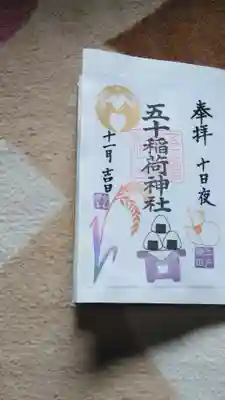 奉拝 十日夜
五十稲荷神社
十一月吉日